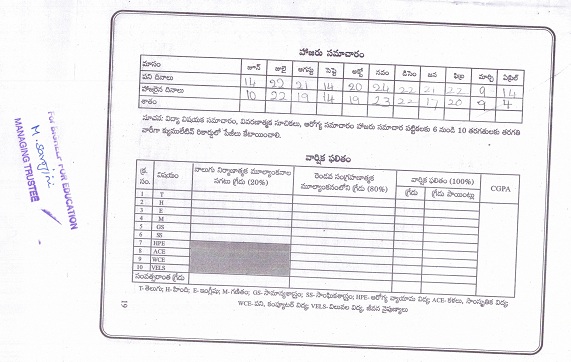 హాజరు సమాచారం
మాసం జూన్ జులై ఆగస్టు సెప్టె అక్టో నవం డిసెం జన ఫిబ్ర మార్చి ఏప్రిల్
పని దినాలు 14 22 21 14 20 24 22 21 22 9 14
హాజరైన దినాలు 10 22 19 14 19 23 22 17 20 9 4
శాతం
సూచన: విద్యా విషయక సమాచారం, వివరణాత్మక సూచికలు, ఆరోగ్య సమాచారం హాజరు సమాచార పట్టికలకు 6 నుండి 10 తరగతులకు తరగతి
వారీగా క్యుములేటివ్ రికార్డులో పేజీలు కేటాయించాలి.
వార్షిక ఫలితం
క్ర. సం. విషయం నాలుగు నిర్మాణాత్మక మూల్యాంకనాల సగటు గ్రేడు (20%) రెండవ సంగ్రహణాత్మక మూల్యాంకనంలోని గ్రేడు (80%) వార్షిక ఫలితం (100%) CGPA
గ్రేడు గ్రేడు పాయింట్లు
1 T
2 H
3 E
4 M
5 GS
6 SS
7 HPE
8 ACE
9 WCE
10 VELS
సంవత్సరాంత గ్రేడు
T- తెలుగు; H-హిందీ; E- ఇంగ్లీషు; M- గణితం; GS- సామాన్యశాస్త్రం; SS- సాంఘికశాస్త్రం; HPE- ఆరోగ్య వ్యాయామ విద్య; ACE- కళలు, సాంస్కృతిక విద్య;
WCE-పని, కంప్యూటర్ విద్య; VELS-విలువల విద్య, జీవన నైపుణ్యాలు
19
EDUCATION
MANAGING TRUSTEE